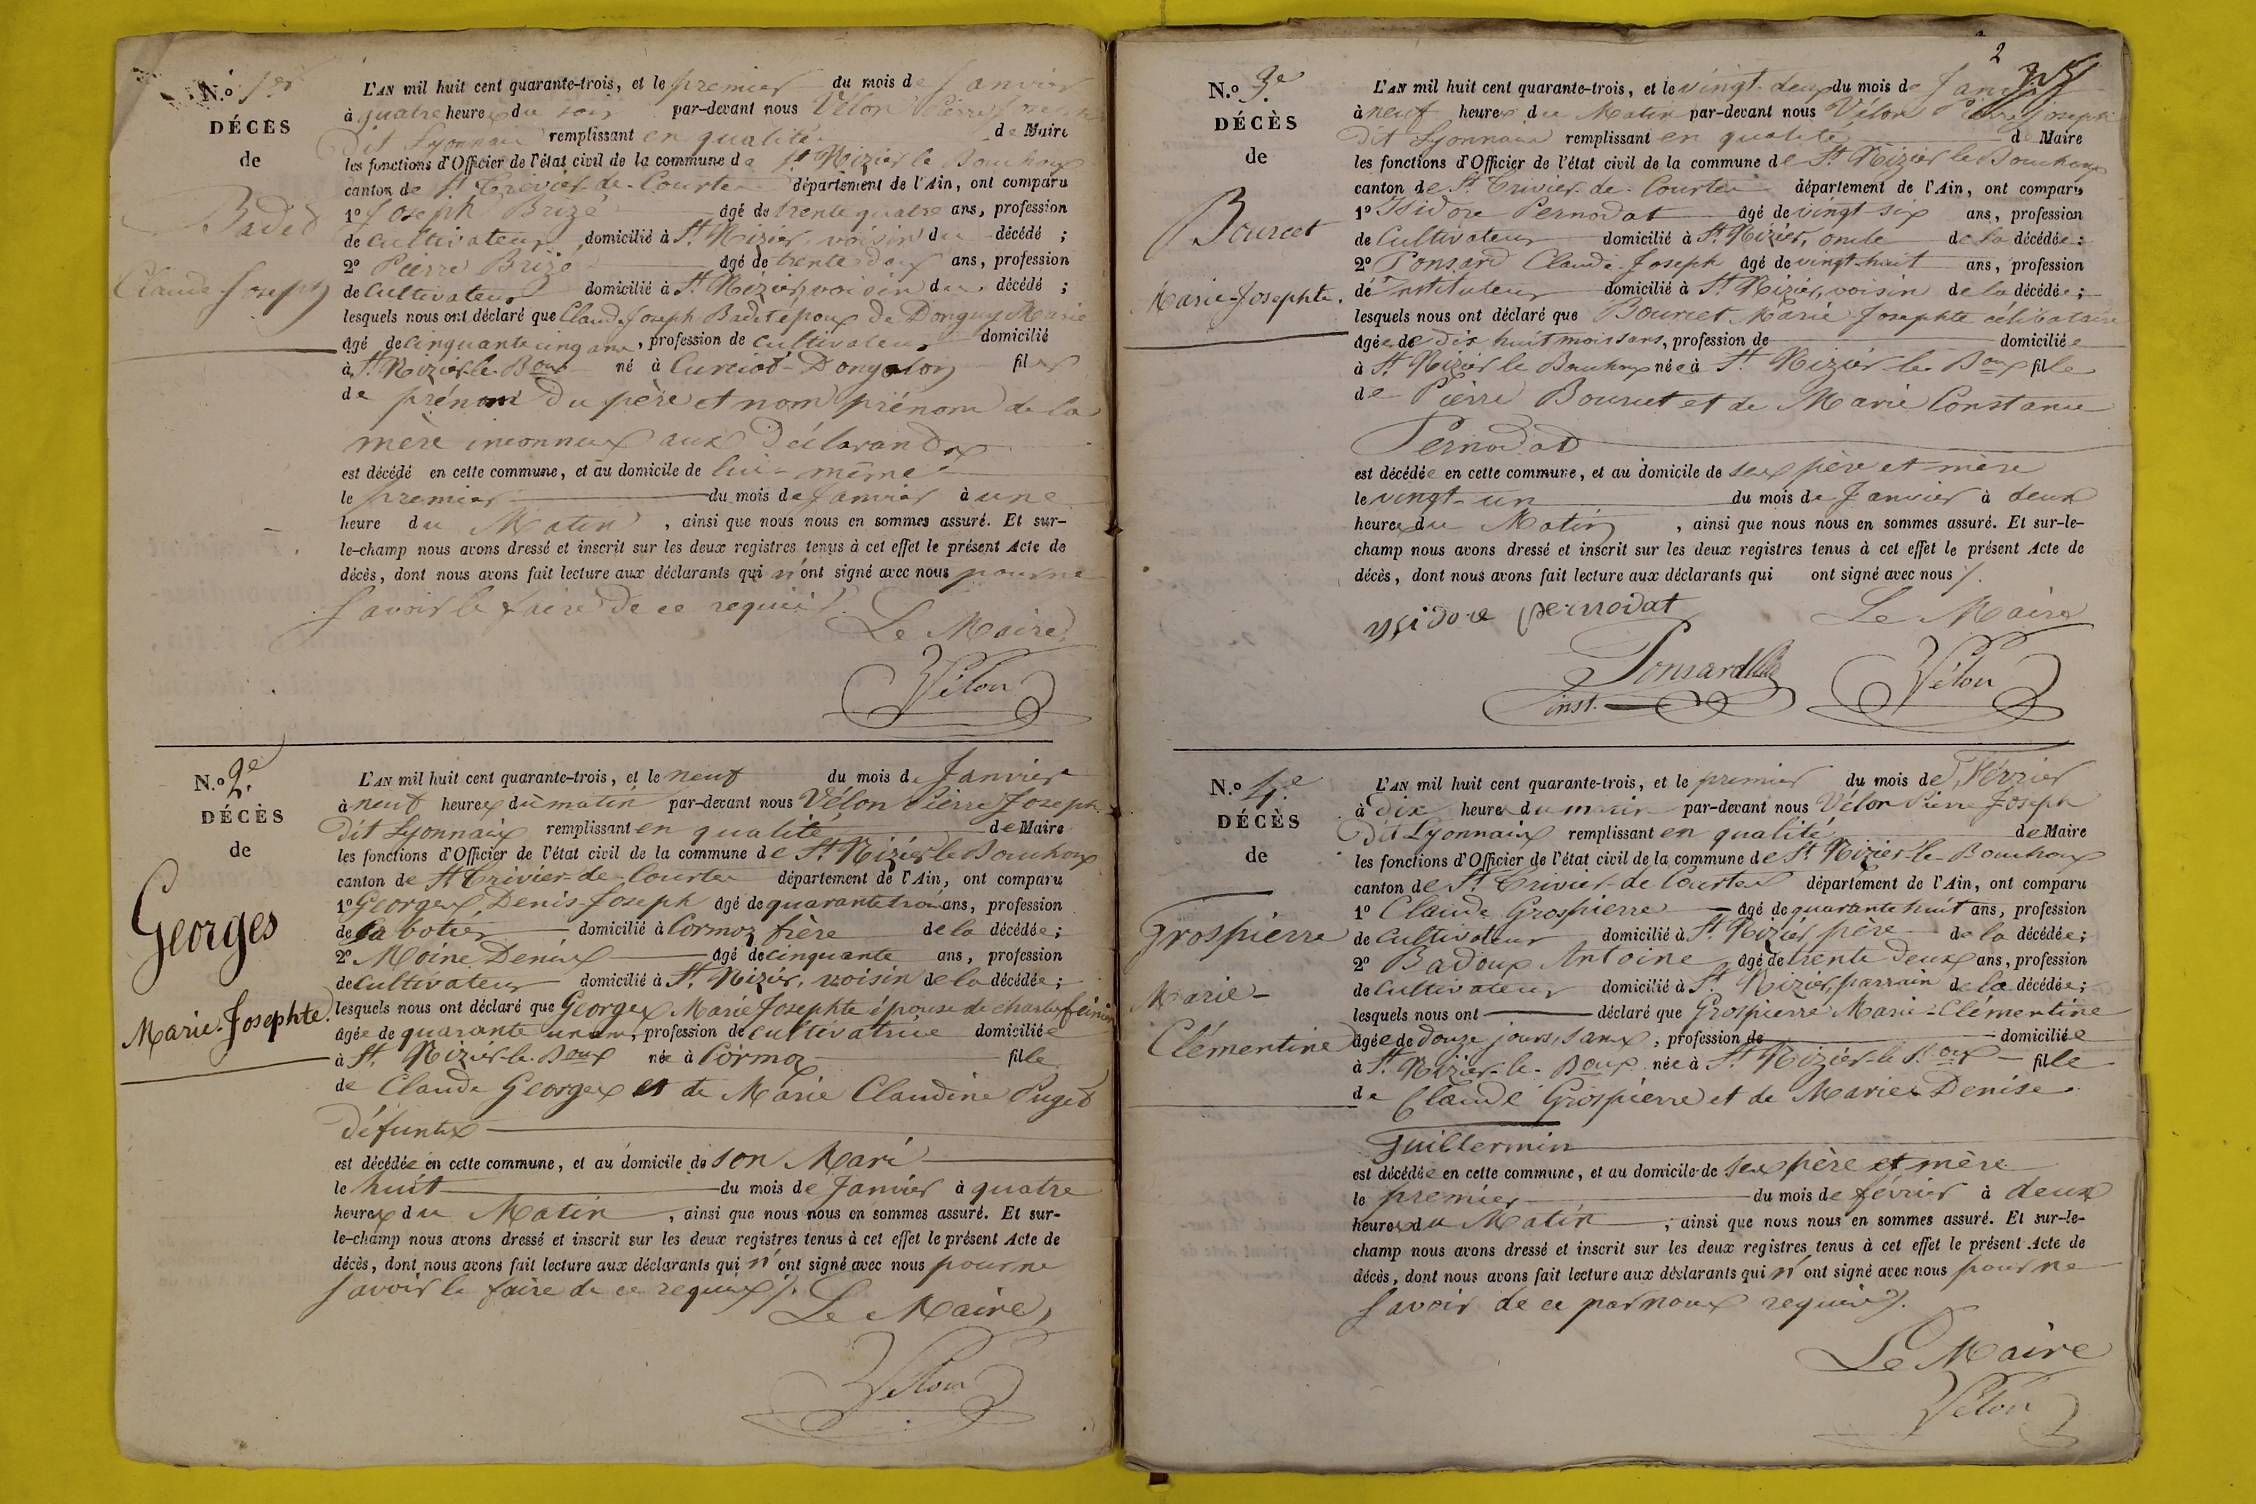 N.o 1er
DÉCÈS
de
Badet
Claude Joseph
L'AN mil huit cent quarante-trois, et le premier du mois de Janvier
à quatre heures du soir par-devant nous Vélon Pierre Joseph
dit Lyonnais remplissant en qualité de Maire
les fonctions d'Officier de l'état civil de la commune de St Nizier le Bouchoux
canton de St Trivier-de-Courtes département de l'Ain, ont comparu
1o Joseph Brizé âgé de trente quatre ans, profession
de Cultivateur domicilié à St Nizier, voisin du décédé ;
2o Pierre Brizé âgé de trente deux ans, profession
de Cultivateur domicilié à St Nizier, voisin du décédé ;
lesquels nous ont déclaré que Claude Joseph Badet époux de Donguy Marie
âgé de cinquante cinq ans, profession de cultivateur domicilié
à St Nizier-le-Boux né à Curciat-Dongalon fils
de prénom du père et nom prénom de la
mère inconnus aux déclarands
est décédé en cette commune, et au domicile de lui-même
le premier du mois de Janvier à une
heure du Matin, ainsi que nous nous en sommes assuré. Et sur-
le-champ nous avons dressé et inscrit sur les deux registres tenus à cet effet le présent Acte de
décès, dont nous avons fait lecture aux déclarants qui n'ont signé avec nous pour ne
savoir le faire de ce requis.
Le Maire,
Vélon
N.o 2e.
DÉCÈS
de
Georges
Marie-Josephte.
L'AN mil huit cent quarante-trois, et le neuf du mois de Janvier
à neuf heures du matin par-devant nous Vélon Pierre Joseph
dit Lyonnais remplissant en qualité de Maire
les fonctions d'Officier de l'état civil de la commune de St Nizier le Bouchoux
canton de St Trivier-de-Courtes département de l'Ain, ont comparu
1o Georges, Denis-Joseph âgé de quarante trois ans, profession
de sabotier domicilié à Cormoz frère de la décédée ;
2o Moine Denis âgé de cinquante ans, profession
de cultivateur domicilié à St Nizier, voisin de la décédée ;
lesquels nous ont déclaré que Georges Marie Josephte épouse de charles
âgée de quarante un ans, profession de cultivatrice domiciliée
à St Nizier-le-Boux née à Cormoz fille
de Claude Georges et de Marie Claudine Puget
défunts
est décédée en cette commune, et au domicile de son Mari
le huit du mois de Janvier à quatre
heures du Matin, ainsi que nous nous en sommes assuré. Et sur-
le-champ nous avons dressé et inscrit sur les deux registres tenus à cet effet le présent Acte de
décès, dont nous avons fait lecture aux déclarants qui n'ont signé avec nous pour ne
savoir le faire de ce requis.
Le Maire,
Vélon
2
N.o 3e.
DÉCÈS
de
Bourcet
Marie-Josephte.
L'AN mil huit cent quarante-trois, et le vingt-deux du mois de Janvier
à neuf heures du Matin par-devant nous Vélon Pierre Joseph
dit Lyonnais remplissant en qualité de Maire
les fonctions d'Officier de l'état civil de la commune de St Nizier le Bouchoux
canton de St Trivier-de-Courtes département de l'Ain, ont comparu
1o Isidore Pernodat âgé de vingt six ans, profession
de Cultivateur domicilié à St Nizier, oncle de la décédée ;
2o Ponsard Claude-Joseph âgé de vingt-huit ans, profession
de Instituteur domicilié à St Nizier, voisin de la décédée ;
lesquels nous ont déclaré que Bourcet Marie Josephte célibataire
âgée de dix huit mois sans, profession de domiciliée
à St Nizier le Bouchoux née à St Nizier-le-Boux fille
de Pierre Bourcet et de Marie Constance
Pernodat
est décédée en cette commune, et au domicile de ses père et mère
le vingt-un du mois de Janvier à deux
heures du Matin, ainsi que nous nous en sommes assuré. Et sur-le-
champ nous avons dressé et inscrit sur les deux registres tenus à cet effet le présent Acte de
décès, dont nous avons fait lecture aux déclarants qui ont signé avec nous.
ysidore pernodat
Le Maire
Ponsard
inst.
Vélon
N.o 4.e
DÉCÈS
de
Grospierre
Marie-
Clémentine
L'AN mil huit cent quarante-trois, et le premier du mois de Février
à dix heures du matin par-devant nous Vélon Pierre Joseph
dit Lyonnais remplissant en qualité de Maire
les fonctions d'Officier de l'état civil de la commune de St Nizier-le-Bouchoux
canton de St Trivier-de Courtes département de l'Ain, ont comparu
1o Claude Grospierre âgé de quarante huit ans, profession
de Cultivateur domicilié à St Nizier père de la décédée ;
2o Badoux Antoine âgé de trente deux ans, profession
de Cultivateur domicilié à St Nizier, parrain de la décédée ;
lesquels nous ont déclaré que Grospierre Marie-Clémentine
âgée de douze jours, sans, profession de domiciliée
à St Nizier-le-Boux née à St Nizier-le Boux fille
de Claude Grospierre et de Marie Denise
Guillermin
est décédée en cette commune, et au domicile de ses père et mère
le premier du mois de février à deux
heures du Matin, ainsi que nous nous en sommes assuré. Et sur-le-
champ nous avons dressé et inscrit sur les deux registres tenus à cet effet le présent Acte de
décès, dont nous avons fait lecture aux déclarants qui n'ont signé avec nous pour ne
savoir de ce par nous requis.
Le Maire
Vélon